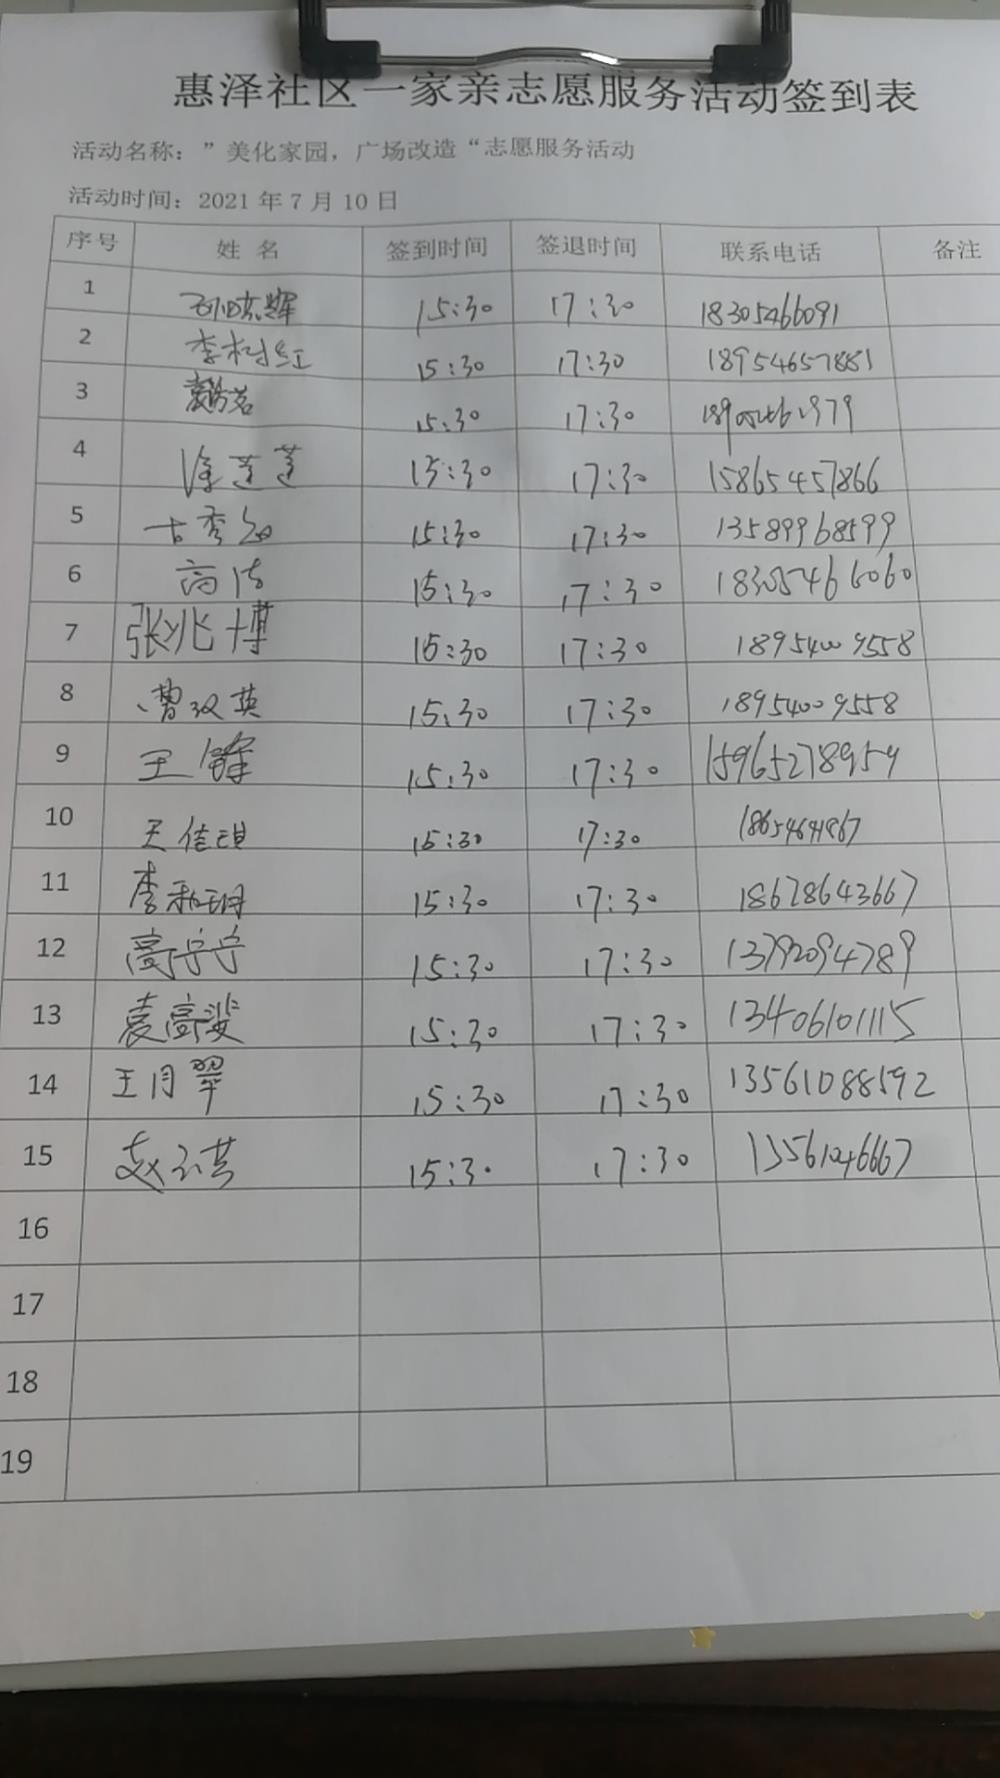 惠泽社区一家亲志愿服务活动签到表
活动名称：”美化家园，广场改造“志愿服务活动
活动时间：2021 年 7 月 10 日
序号 姓 名 签到时间 签退时间 联系电话 备注
1 15:30 17:30 18305466091
2 李树红 15:30 17:30 18954657881
3 15:30 17:30
4 徐莲莲 15:30 17:30 15865457866
5 15:30 17:30 13589968599
6 高洁 15:30 17:30 18305466060
7 张兆博 15:30 17:30 18954009558
8 曹汉英 15:30 17:30 18954009558
9 王锋 15:30 17:30 15965278959
10 王佳琪 15:30 17:30
11 李和玥 15:30 17:30 18678643667
12 高宁宁 15:30 17:30 13792094789
13 袁高斐 15:30 17:30 13406101115
14 王月翠 15:30 17:30 13561088592
15 赵云芸 15:30 17:30 13561046667
16
17
18
19